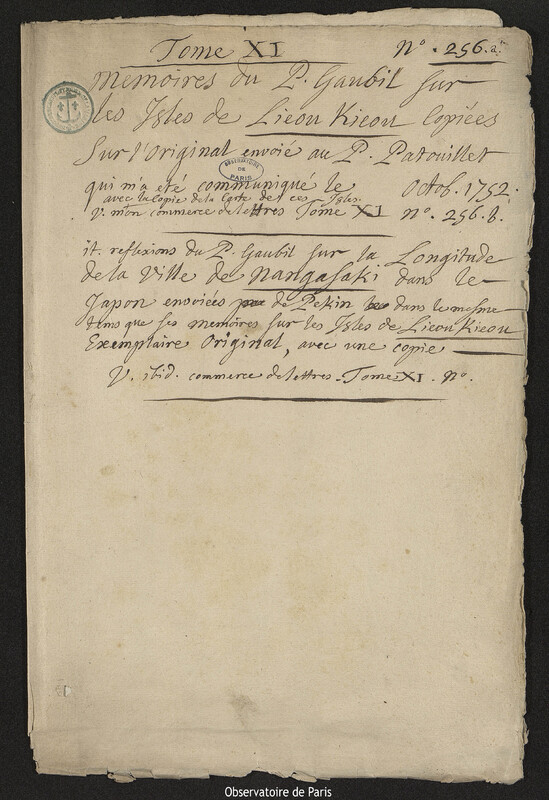 Tome XI N° . 256. a.
Memoires du P. Gaubil sur
les Isles de Lieou Kieou Copiées
Sur l'Original envoié au P. Patouillet
qui m'a eté communiqué le Octob. 1752.
avec la Copie de la Carte de ces Isles.
V. mon commerce de lettres Tome XI n°. 256. b.
OBSERVATOIRE
DE
PARIS
it. reflexions du P. Gaubil sur la Longitude
de la Ville de Nangasaki dans le
Japon envoiées de Pekin dans le mesme
tems que ses memoires sur les Isles de Lieou Kieou
Exemplaire Original, avec une copie
V. ibid. commerce de lettres - Tome XI. N°.
Observatoire de Paris